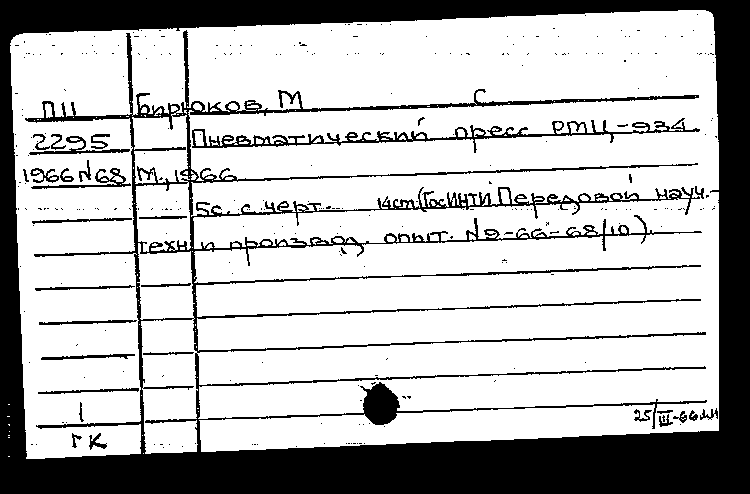 ПII Бирюков, М С.
2295 Пневматический пресс РМЦ-934.
1966 N68 М., 1966
5с. с черт. 14см (ГосИНТИ. Передовой науч.-
техн и производ. опыт. N 9-66-68/10).
1
ГК 25/III-66